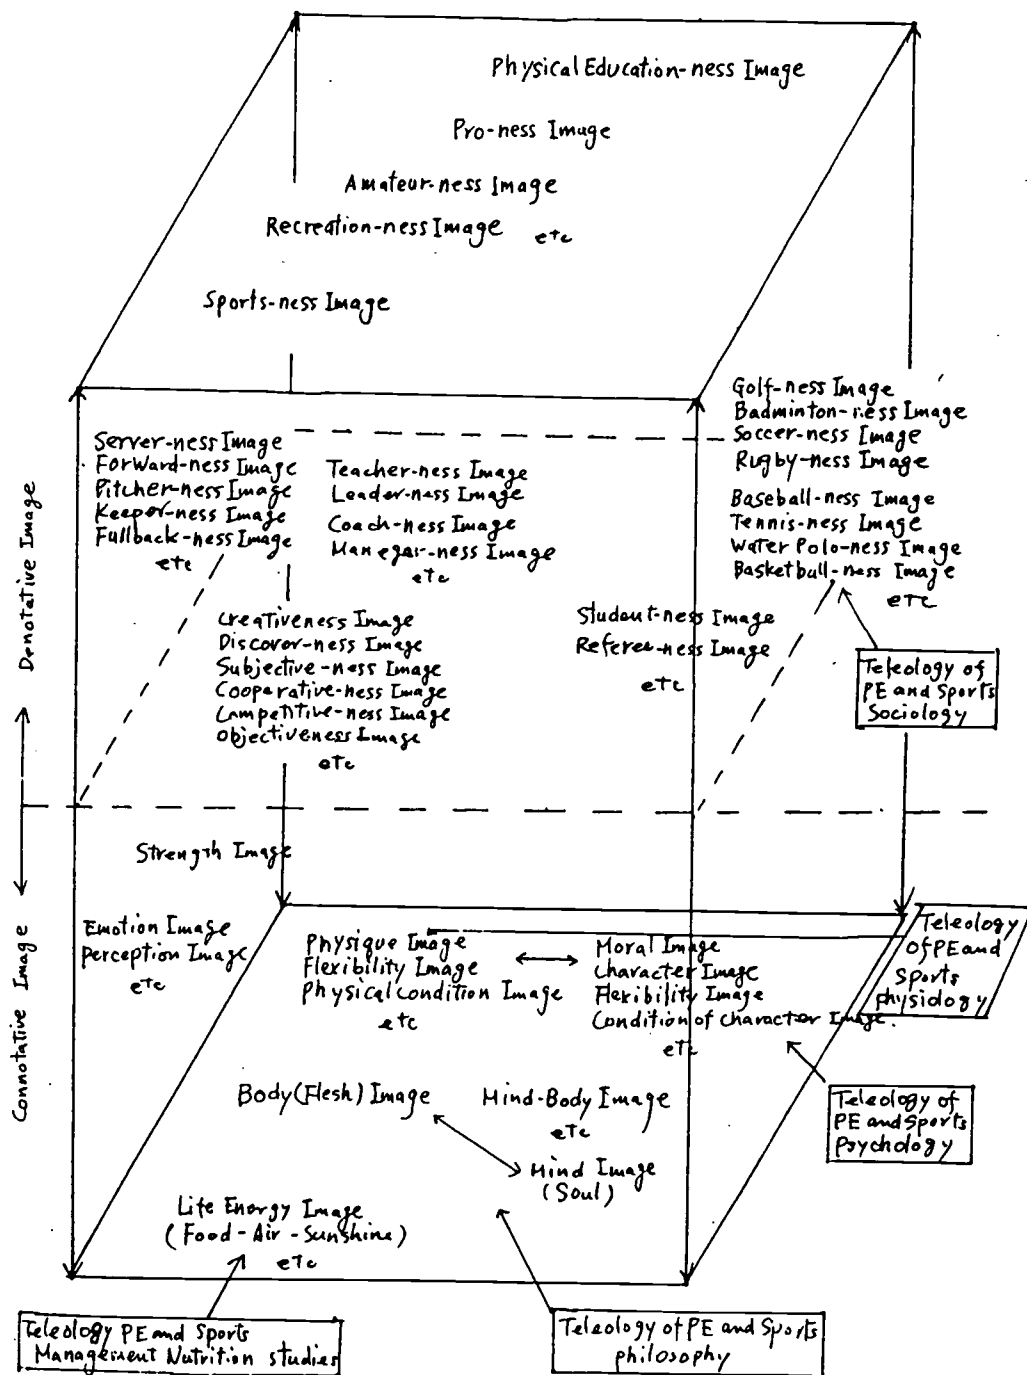 Physical Education-ness Image
Pro-ness Image
Amateur-ness Image
Recreation-ness Image etc
Sports-ness Image
Golf-ness Image
Badminton-ness Image
Soccer-ness Image
Rugby-ness Image
Baseball-ness Image
Tennis-ness Image
Water Polo-ness Image
Basketball-ness Image
etc
Server-ness Image
Forward-ness Image
Pitcher-ness Image
Keeper-ness Image
Fullback-ness Image
etc
Teacher-ness Image
Leader-ness Image
Coach-ness Image
Manegar-ness Image
etc
Creativeness Image
Discover-ness Image
Subjective-ness Image
Cooperative-ness Image
Competitive-ness Image
Objectiveness Image
etc
Student-ness Image
Referee-ness Image
etc
Teleology of
PE and Sports
Sociology
Denotative Image
Connotative Image
Strength Image
Emotion Image
Perception Image
etc
Physique Image
Flexibility Image
Physical Condition Image
etc
Moral Image
Character Image
Flexibility Image
Condition of character Image.
etc
Teleology
of PE and
Sports
physiology
Body (Flesh) Image
Mind-Body Image
etc
Mind Image
(Soul)
Teleology of
PE and Sports
Psychology
Life Energy Image
(Food-Air-Sunshine)
etc
Teleology PE and Sports
Management Nutrition studies
Teleology of PE and Sports
philosophy